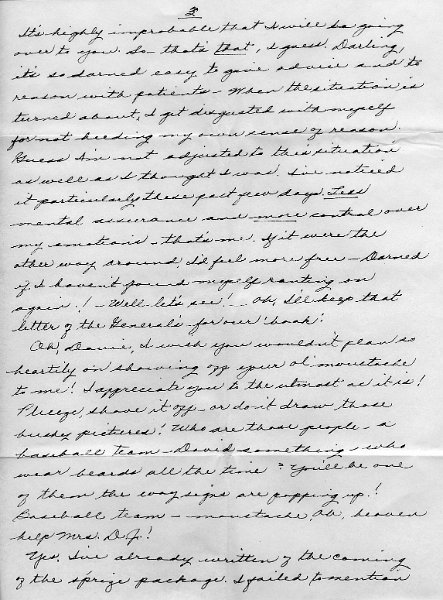 3
It's highly improbable that I will be going
over to you. So that's that, I guess. Darling,
it's so darned easy to give advice and to
reason with patients - When the situation is
turned about, I get disgusted with myself
for not heeding my own sense of reason.
Guess I'm not adjusted to this situation
as well as I thought I was. I've noticed
it particularly these past few days. Less
mental assurance and more control over
my emotions - that's me. If it were the
other way around, I'd feel more free - Darned
if I haven't found myself ranting on
again! - Well - let's see! - Oh, I'll keep that
letter of the General's for our 'book'.
Oh, Davie, I wish you wouldn't plan so
heartily on showing off your ol' moustache
to me! I appreciate you to the utmost as it is!
Pleeze, shave it off - or do it draw those
bushy pictures! Who are those people - a
baseball team - David something - who
wear beards all the time? You'll be one
of them the way signs are popping up!
Baseball team - moustache, Oh, heaven
help Mrs. D.J!
Yes, I've already written of the coming
of the s'prize package. I failed to mention